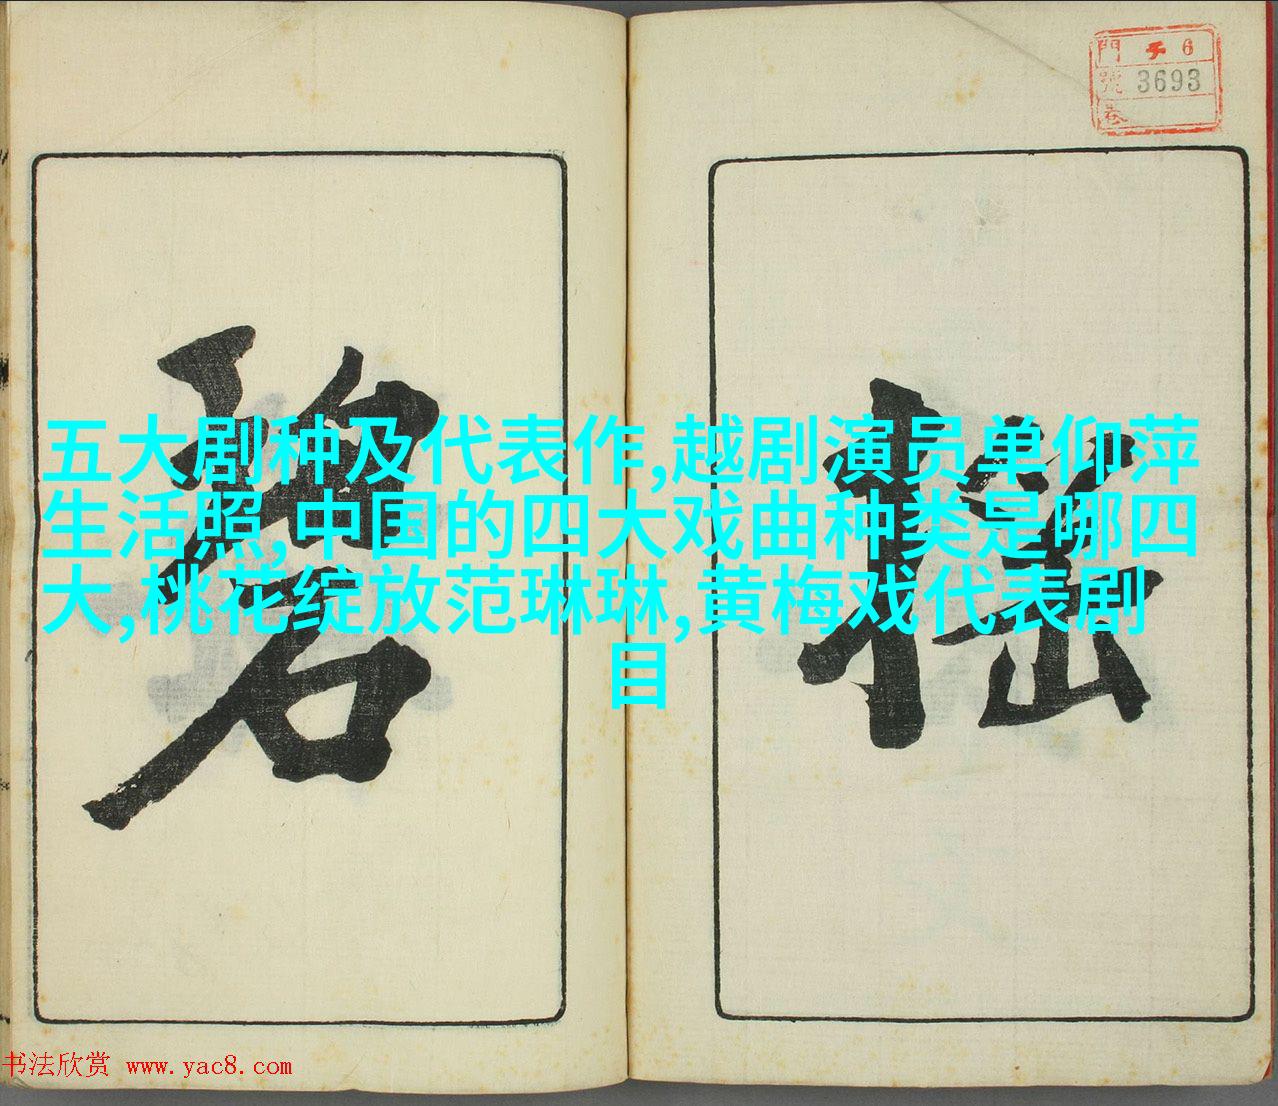 門 チ 6
號 3693
卷
碧
五大剧种及代表作,越剧演员单仰萍
生活照,中国的四大戏曲种类是哪四
大,桃花绽放范琳琳,黄梅戏代表剧
目
书法欣赏 www.yac8.com